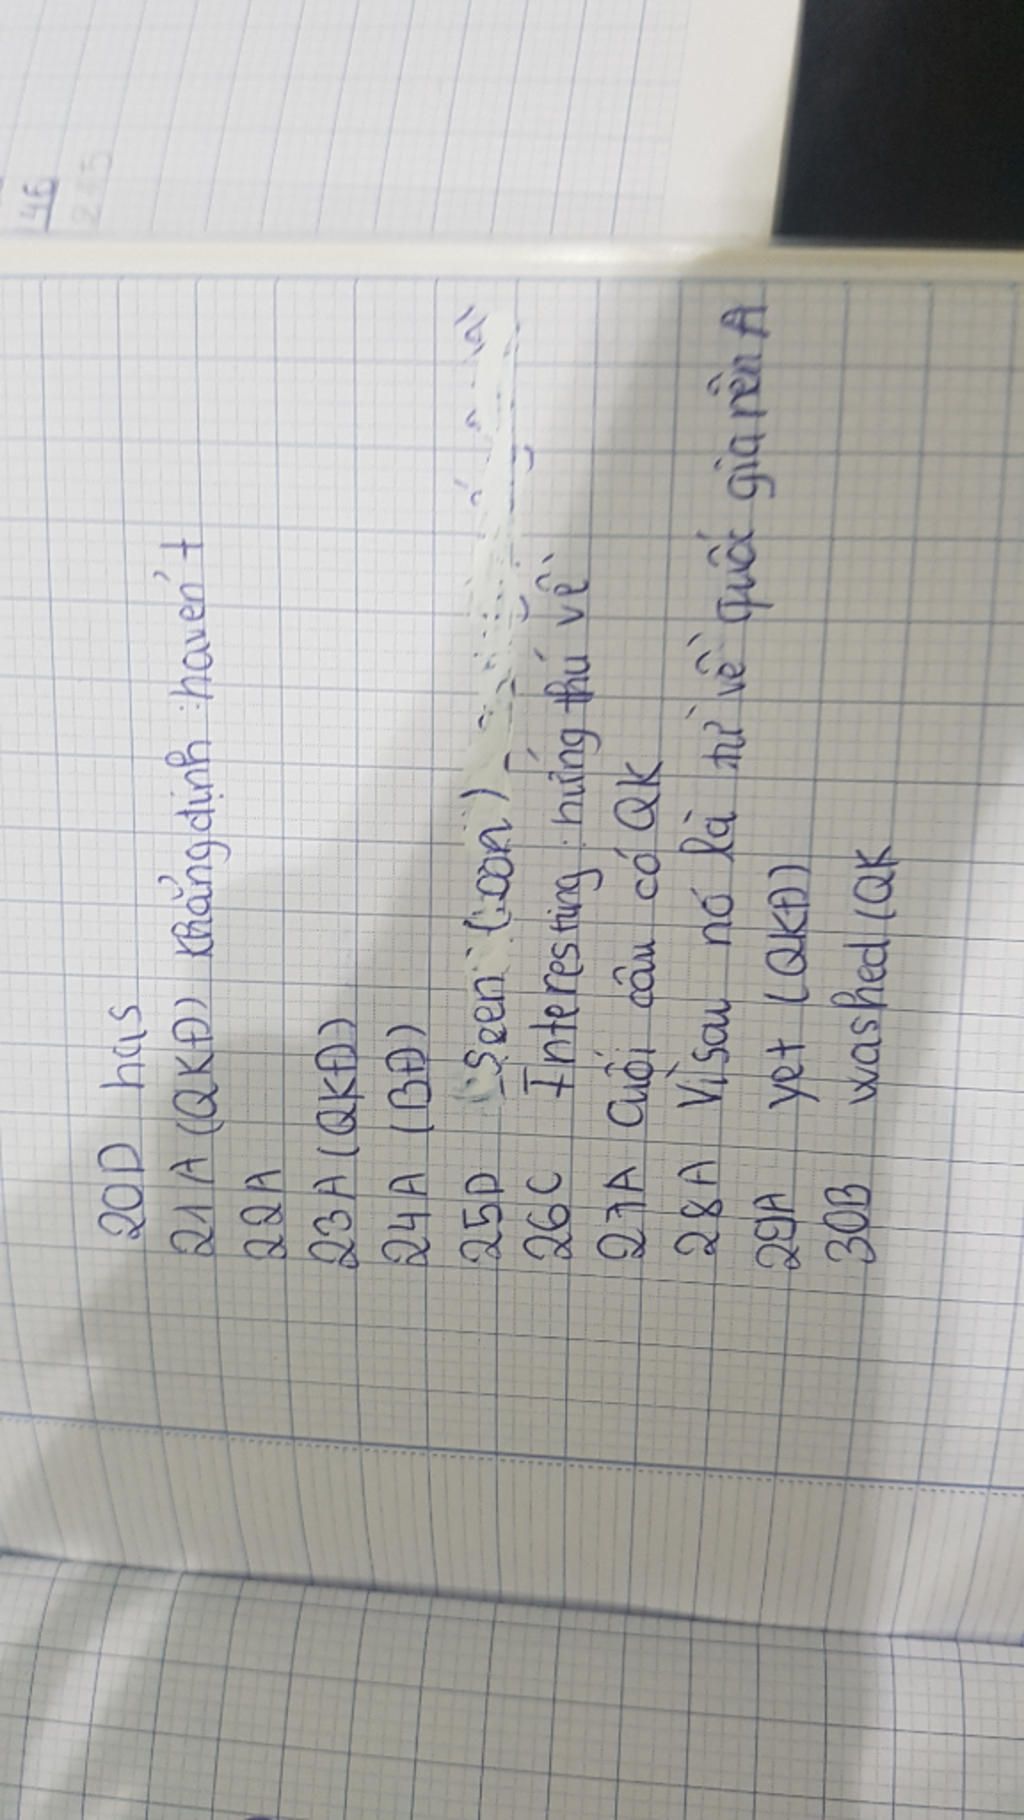 46
245
20D has
21A (QKĐ) khẳng định : haven't
22A
23A (QKĐ)
24A (BĐ)
25D (seen
26C Interesting : hứng thú về
27A Cuối câu có QK
28A Vì sau nó là từ về quốc gia nên A
29A yet (QKĐ)
30B washed (QK